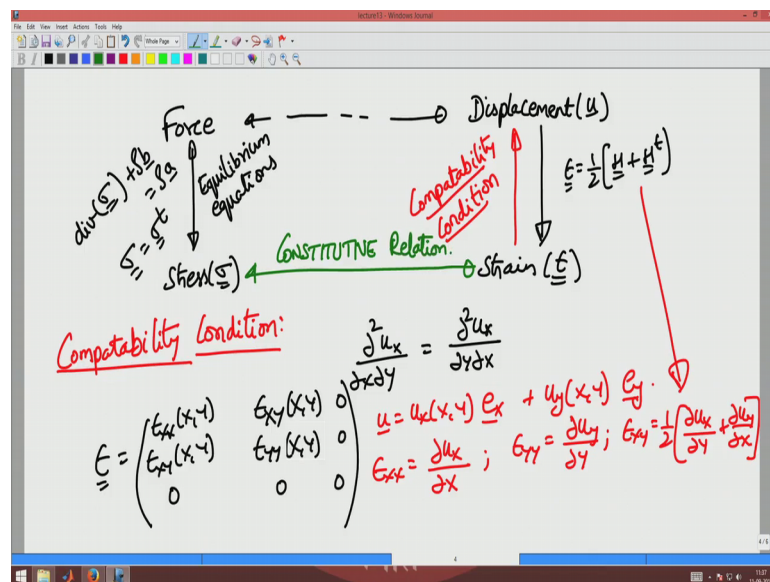 lecture13 - Windows Journal
File Edit View Insert Actions Tools Help
Whole Page
B I
Force
Displacement (u)
div(σ) + ρb
= ρa
σ = σᵗ
Equilibrium
equations
Compatability
Condition
ϵ = 1/2 [H + Hᵗ]
Stress(σ)
CONSTITUTIVE Relation.
Strain (ϵ)
Compatability Condition:
∂²uₓ/∂x∂y = ∂²uₓ/∂y∂x
u = uₓ(x,y) eₓ + u_y(x,y) e_y.
ϵ = ( ϵxx(x,y) ϵxy(x,y) 0
ϵxy(x,y) ϵyy(x,y) 0
0 0 0 )
ϵxx = ∂uₓ/∂x ; ϵyy = ∂u_y/∂y ; ϵxy = 1/2 [∂uₓ/∂y + ∂u_y/∂x]
4 / 6
4
11:37